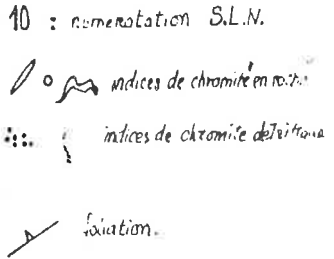 10 : numerotation S.L.N.
indices de chromite en roche
indices de chromite detritique
foliation.